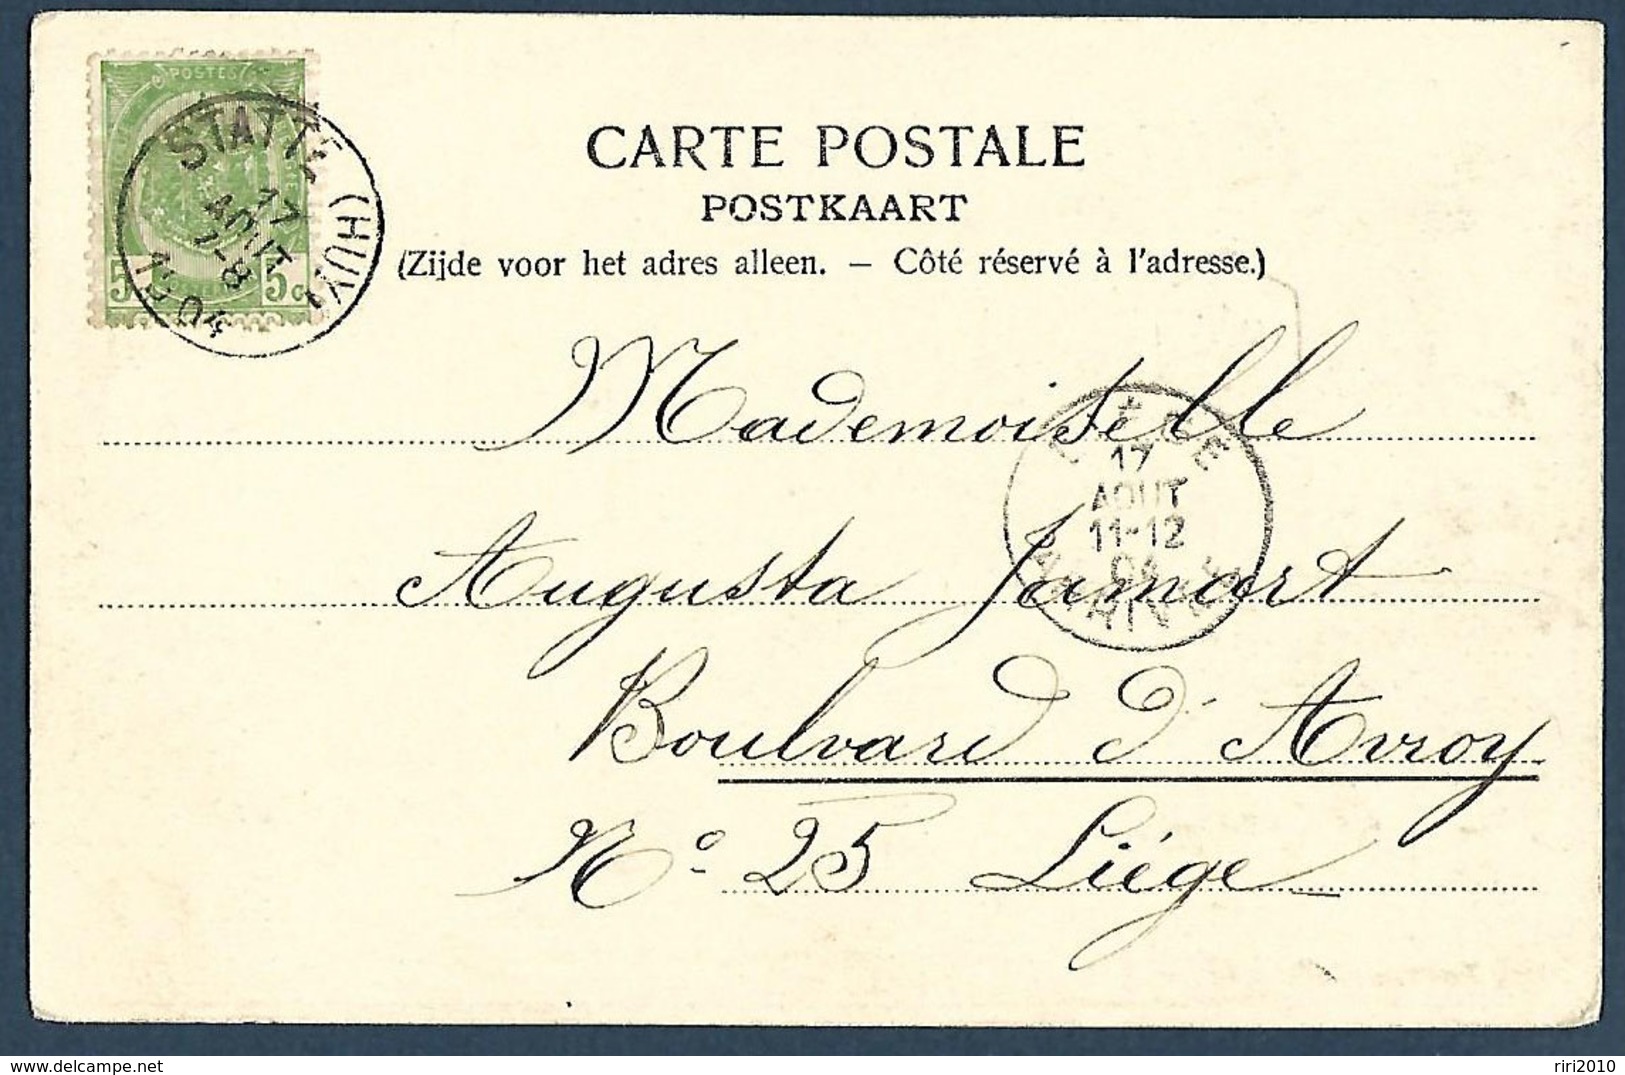 POSTES
5 5 c
STATTE (HUY)
17
AOUT
7-8
1904
CARTE POSTALE
POSTKAART
(Zijde voor het adres alleen. — Côté réservé à l'adresse.)
Mademoiselle
17
AOUT
11-12
04
Augusta Jamart
Boulvard d'Avroy
N° 25 Liége
riri2010